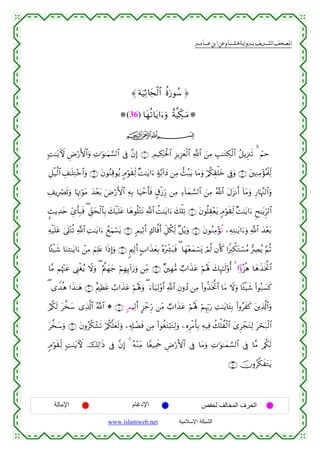 المصحف الشريف برواية هشام عن ابن عامر
﴿ سُورَةُ ٱلْجَاثِيَة ﴾
* مَكِّيَّةٌ وَءَايَاتُهَا (36) *
بِسْمِ ٱللَّهِ ٱلرَّحْمَٰنِ ٱلرَّحِيمِ
حمٓ ۚ تَنزِيلُ ٱلْكِتَٰبِ مِنَ ٱللَّهِ ٱلْعَزِيزِ ٱلْحَكِيمِ ۝ إِنَّ فِى ٱلسَّمَٰوَٰتِ وَٱلْأَرْضِ لَأٓيَٰتٍ
لِّلْمُؤْمِنِينَ ۝ وَفِى خَلْقِكُمْ وَمَا يَبُثُّ مِن دَآبَّةٍ ءَايَٰتٌ لِّقَوْمٍ يُوقِنُونَ ۝ وَٱخْتِلَٰفِ ٱلَّيْلِ
وَٱلنَّهَارِ وَمَآ أَنزَلَ ٱللَّهُ مِنَ ٱلسَّمَآءِ مِن رِّزْقٍ فَأَحْيَا بِهِ ٱلْأَرْضَ بَعْدَ مَوْتِهَا وَتَصْرِيفِ
ٱلرِّيَٰحِ ءَايَٰتٌ لِّقَوْمٍ يَعْقِلُونَ ۝ تِلْكَ ءَايَٰتُ ٱللَّهِ نَتْلُوهَا عَلَيْكَ بِٱلْحَقِّ ۖ فَبِأَىِّ حَدِيثٍۭ
بَعْدَ ٱللَّهِ وَءَايَٰتِهِۦ تُؤْمِنُونَ ۝ وَيْلٌ لِّكُلِّ أَفَّاكٍ أَثِيمٍ ۝ يَسْمَعُ ءَايَٰتِ ٱللَّهِ تُتْلَىٰ عَلَيْهِ
ثُمَّ يُصِرُّ مُسْتَكْبِرًا كَأَن لَّمْ يَسْمَعْهَا ۖ فَبَشِّرْهُ بِعَذَابٍ أَلِيمٍ ۝ وَإِذَا عَلِمَ مِنْ ءَايَٰتِنَا شَيْـًٔا
ٱتَّخَذَهَا هُزُؤًا ۚ أُو۟لَٰٓئِكَ لَهُمْ عَذَابٌ مُّهِينٌ ۝ مِّن وَرَآئِهِمْ جَهَنَّمُ ۖ وَلَا يُغْنِى عَنْهُم مَّا
كَسَبُوا۟ شَيْـًٔا وَلَا مَا ٱتَّخَذُوا۟ مِن دُونِ ٱللَّهِ أَوْلِيَآءَ ۖ وَلَهُمْ عَذَابٌ عَظِيمٌ ۝ هَٰذَا هُدًى ۖ
وَٱلَّذِينَ كَفَرُوا۟ بِـَٔايَٰتِ رَبِّهِمْ لَهُمْ عَذَابٌ مِّن رِّجْزٍ أَلِيمٍ ۝ * ٱللَّهُ ٱلَّذِى سَخَّرَ لَكُمُ
ٱلْبَحْرَ لِتَجْرِىَ ٱلْفُلْكُ فِيهِ بِأَمْرِهِۦ وَلِتَبْتَغُوا۟ مِن فَضْلِهِۦ وَلَعَلَّكُمْ تَشْكُرُونَ ۝ وَسَخَّرَ
لَكُم مَّا فِى ٱلسَّمَٰوَٰتِ وَمَا فِى ٱلْأَرْضِ جَمِيعًا مِّنْهُ ۚ إِنَّ فِى ذَٰلِكَ لَأٓيَٰتٍ لِّقَوْمٍ
يَتَفَكَّرُونَ ۝
الحرف المخالف لحفص
الإدغام
الإمالة
الشبكة الإسلامية
www.islamweb.net